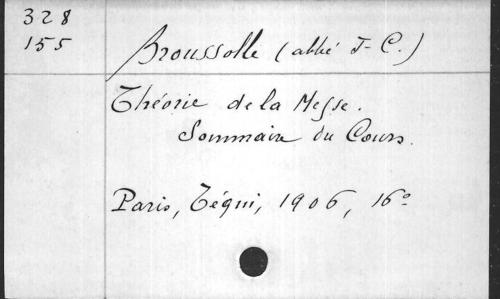 328
155
Broussolle (abbé J-C.)
Théorie de la Messe.
Sommaire du Cours.
Paris, Téqui, 1906, 16°